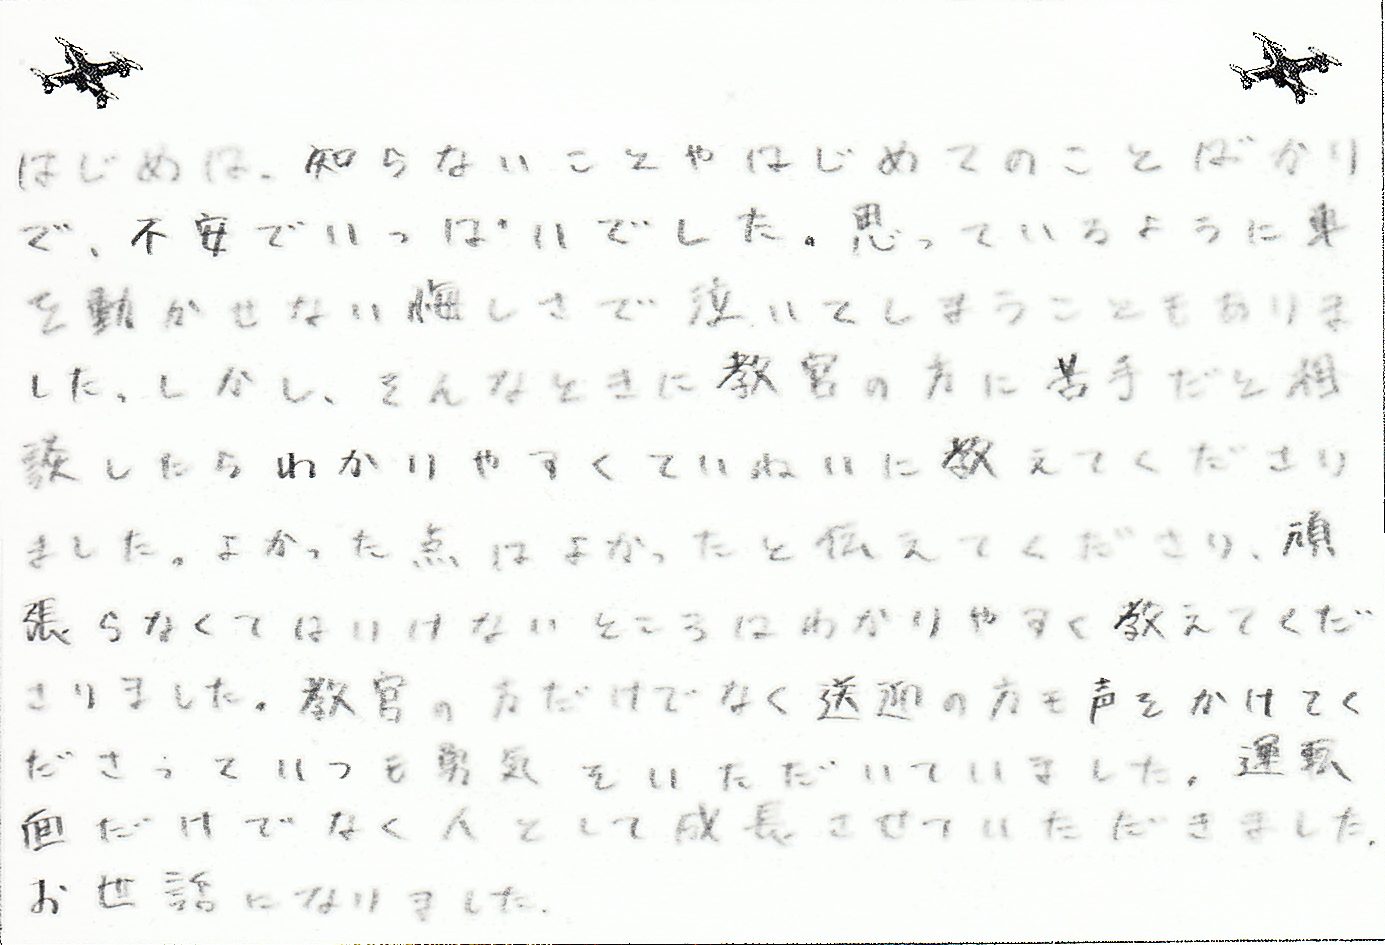 はじめは、知らないことやはじめてのことばかり
で、不安でいっぱいでした。思っているように車
を動かせない悔しさで泣いてしまうこともありま
した。しかし、そんなときに教官の方に苦手だと相
談したらわかりやすくていねいに教えてくださり
ました。よかった点はよかったと伝えてくださり、頑
張らなくてはいけないところはわかりやすく教えてくだ
さりました。教官の方だけでなく送迎の方も声をかけてく
ださっていつも勇気をいただいていました。運転
面だけでなく人として成長させていただきました。
お世話になりました。